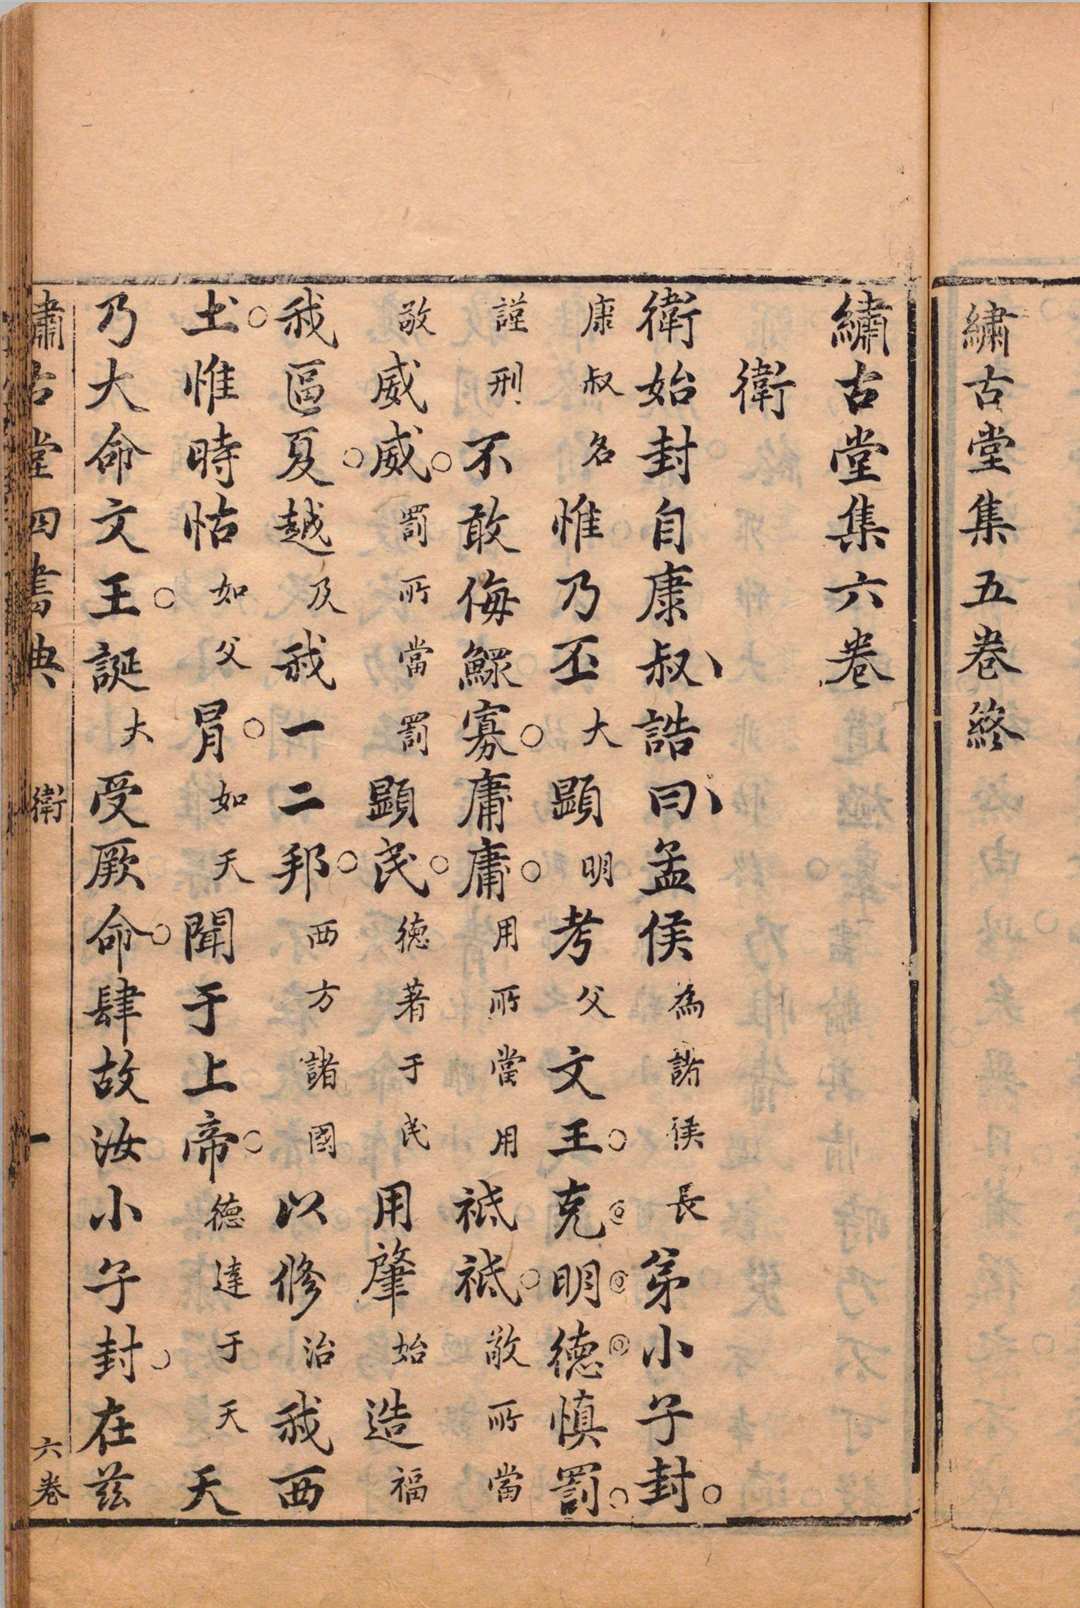 繡古堂集五卷終
繡古堂集六卷
衛
衛始封自康叔誥曰孟侯為諸侯長弟小子封
康叔名惟乃丕大顯明考父文王克明德慎罰
謹刑不敢侮鰥寡庸庸用所當用祗祗敬所當
敬威威罰所當罰顯民德著于民用肇始造福
我區夏越及我一二邦西方諸國以修治我西
土惟時怙如父冒如天聞于上帝德達于天天
乃大命文王誕大受厥命肆故汝小子封在茲
繡古堂四書典 衛 一 六卷